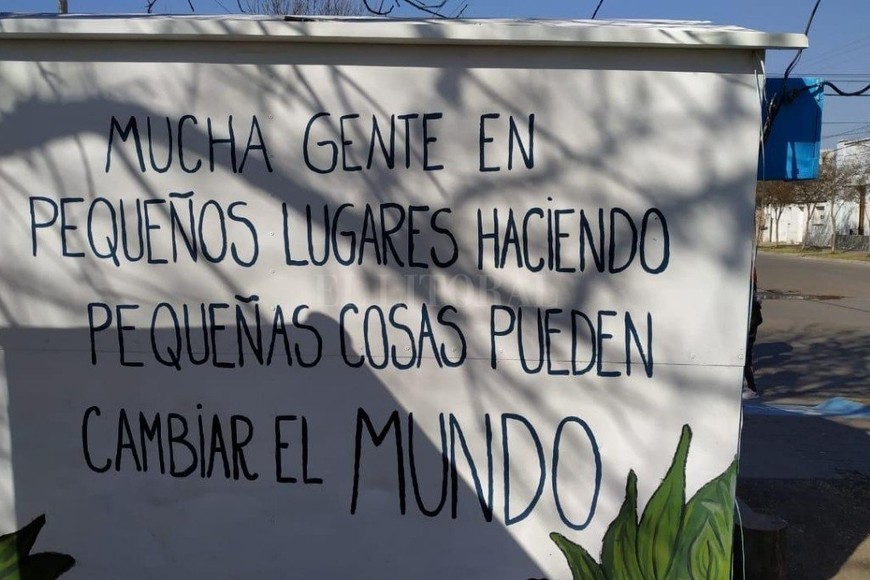 MUCHA GENTE EN
PEQUEÑOS LUGARES HACIENDO
EL LITORAL
PEQUEÑAS COSAS PUEDEN
CAMBiAR EL MUNDO